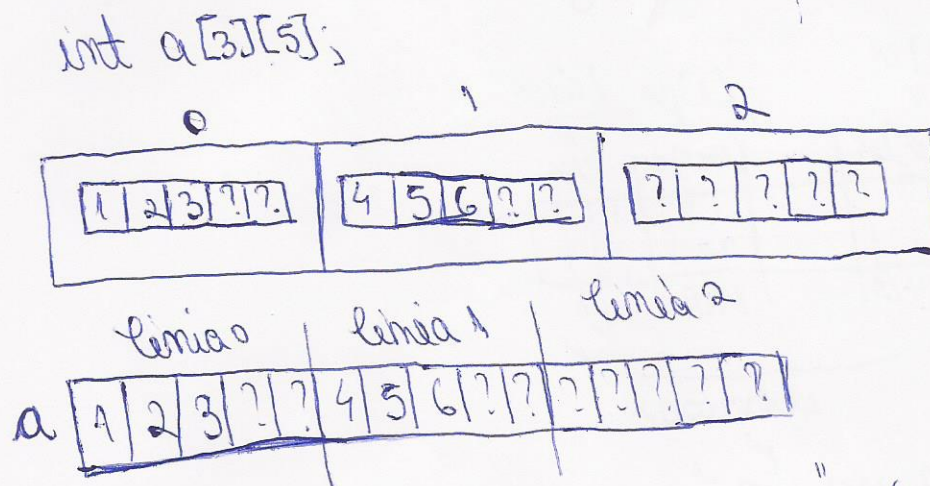 int a[3][5];
0 1 2
1 2 3 ? ? 4 5 6 ? ? ? ? ? ? ?
linia 0 linia 1 linia 2
a 1 2 3 ? ? 4 5 6 ? ? ? ? ? ? ?